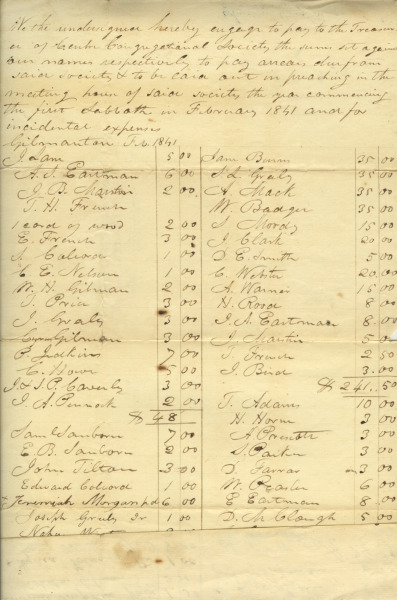 We the undersigned hereby engage to pay to the Treasur
er of Center Congregational Society the sums set against
our names respectively to pay arrears due from
said society & to be laid out in preaching in the
meeting house of said society the year commencing
the first Sabbath in February 1841 and for
incidental expenses
Gilmanton Feb. 1841
J Lane 5 00
A. S. Eastman 6 00
J. B. Martin 2 00
T. H. French
1 cord of wood 2 00
E. French 3 00
Coword 1 00
E. E. Nelson 1 00
W. H. Gilman 2 00
T. Price 3 00
J. Grealy 3 00
Cyrus Gilman 3 00
P. Judkins 7 00
C. Howe 5 00
J & S. P. Caverly 3 00
J. A. Pennock 2 00
$ 48
Saml Sanborn 7 00
E B. Sanborn 2 00
John Tilton 3 00
Edward Coword 1 00
Jeremiah Morgan pd 6 00
Joseph Greely Jr 1 00
Sam Burns 35 00
S. L. Grealy 35 00
A. Mack 35 00
W. Badger 35 00
S. Moody 15 00
J. Clark 20 00
D. E. Smith 5 00
C. Webster 20 00
A. Warner 15 00
H. Rood 8 00
J. A. Eastman 8 00
J. Martin 5 00
T. French 2 50
J. Bird 3 00
$ 241.50
T. Adams 10 00
H. Horne 3 00
A. Prescott 3 00
S. Parker 3 00
D. Farrar 3 00
W. Peaslee 6 00
E Eastman 8 00
D. McClough 5 00